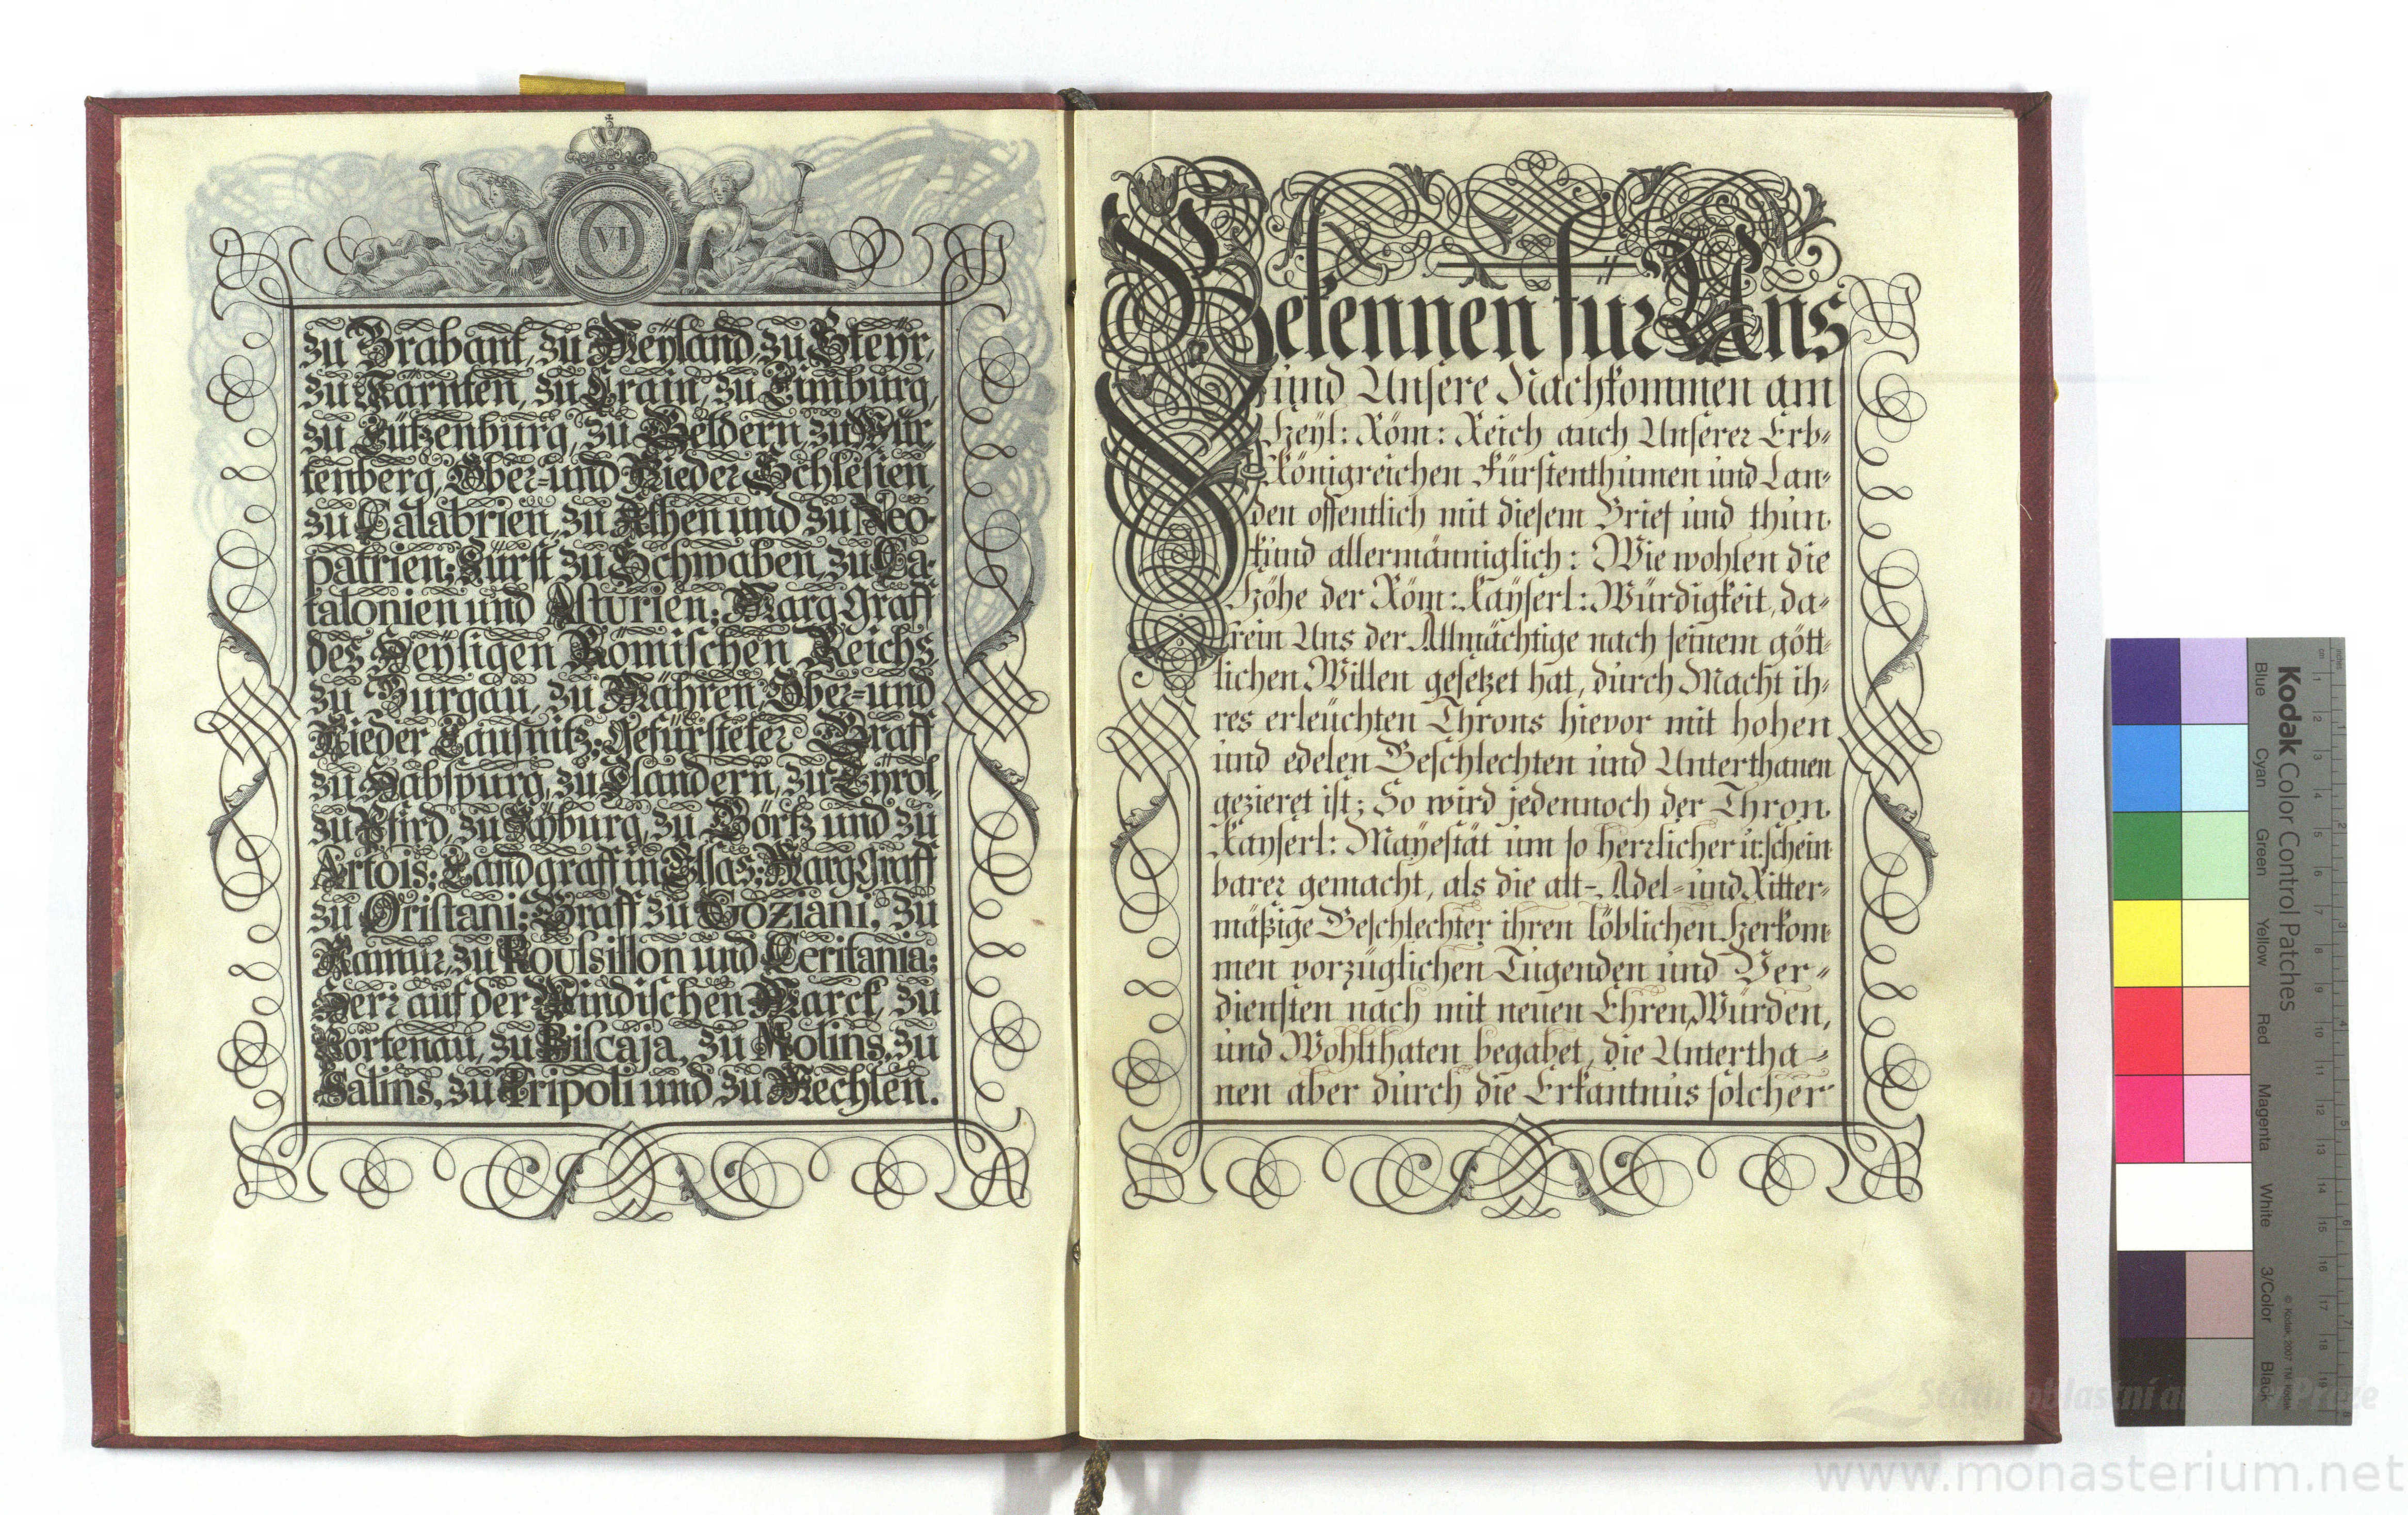 VI
zu Brabant, zu Meyland, zu Steyr,
zu Kärnten, zu Crain, zu Limburg,
zu Lützenburg, zu Geldern, zu Wür,
tenberg, Ober=und Nieder Schlesien,
zu Calabrien, zu Athen und zu Neo-
patrien; Fürst zu Schwaben, zu Ca-
talonien und Asturien; Marggraff
des Heyligen Römischen Reichs,
zu Burgau, zu Mähren, Ober=und
Nieder Lausnitz; Gefürsteter Graff
zu Habspurg, zu Flandern, zu Tyrol,
zu Pfird, zu Kyburg, zu Görtz und zu
Artois; Landgraff in Elsas; Marggraff
zu Oristani; Graff zu Goziani, zu
Namur, zu Roussillon und Ceritania;
Herr auf der Windischen Marck, zu
Portenau, zu Biscaja, zu Molins, zu
Salins, zu Tripoli und zu Mechlen.
Bekennen für Uns
und Unsere Nachkommen am
Heyl: Röm: Reich auch Unserer Erb=
Königreichen Fürstenthumen und Lan=
den offentlich mit diesem Brief und thun
kund allermänniglich: Wie wohlen die
Höhe der Röm: Kayserl: Würdigkeit, da=
rein Uns der Allmächtige nach seinem gött=
lichen Willen gesetzet hat, durch Macht ih=
res erleüchten Throns hievor mit hohen
und edelen Geschlechten und Unterthanen
gezieret ist; So wird jedennoch der Thron
Kayserl: Mayestät um so herrlicher u: schein
barer gemacht, als die alt-Adel=und Ritter=
mäßige Geschlechter ihren löblichen Herkom
men vorzüglichen Tugenden und Ver=
diensten nach mit neuen Ehren, Würden,
und Wohlthaten begabet, die Untertha=
nen aber durch die Erkantnus solcher
Kodak Color Control Patches
Blue Cyan Green Yellow Red Magenta White 3/Color Black
© Kodak, 2007 TM: Kodak
Státní oblastní archiv v Praze
www.monasterium.net